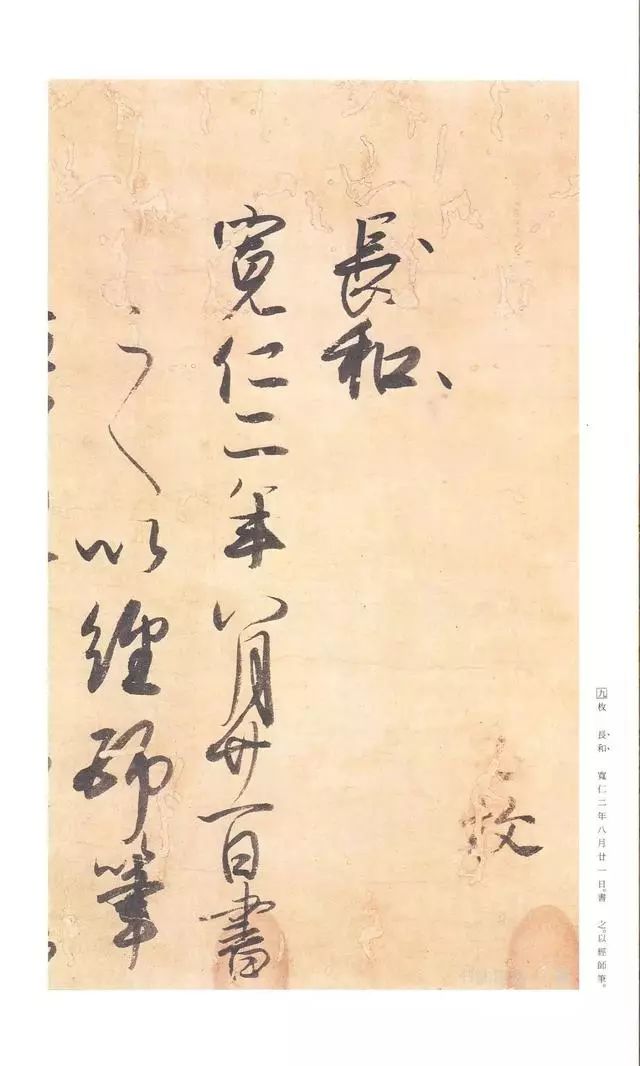 枚
長和
寛仁二年八月廿一日書
之以經師筆
九枚　長和　寬仁二年八月廿一日書　之。以經師筆。